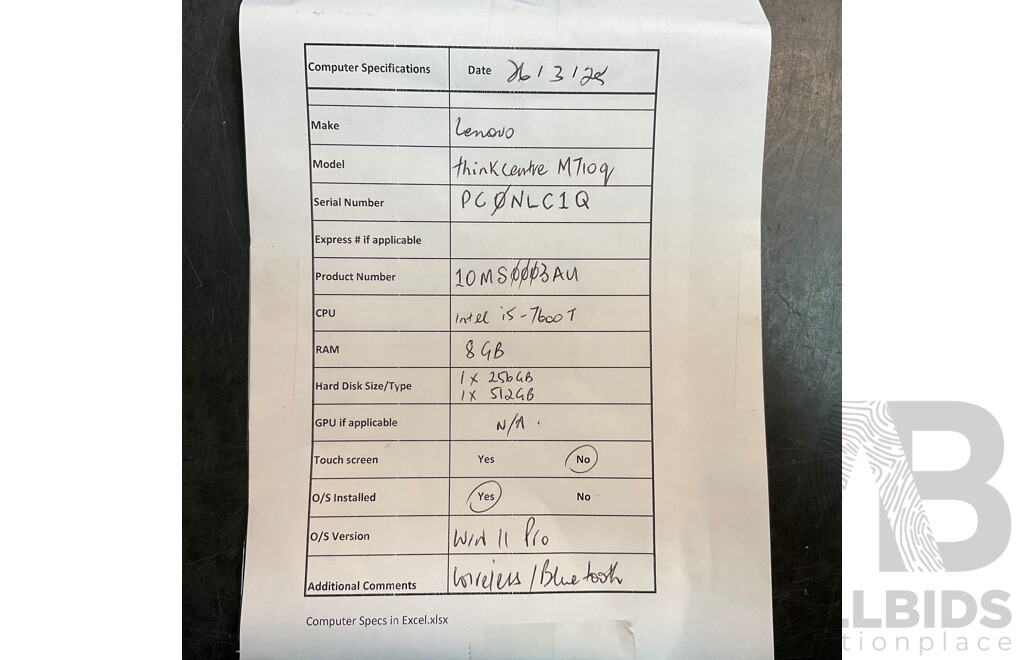 Computer Specifications Date 26/3/25
Make Lenovo
Model thinkcentre M710q
Serial Number PC0NLC1Q
Express # if applicable
Product Number 10MS0003AU
CPU intel i5-7600T
RAM 8 GB
Hard Disk Size/Type 1 x 256GB
1 x 512GB
GPU if applicable N/A .
Touch screen Yes No
O/S Installed Yes No
O/S Version Win 11 Pro
Additional Comments Wireless / Bluetooth
Computer Specs in Excel.xlsx
AB
LLBIDS
tionplace